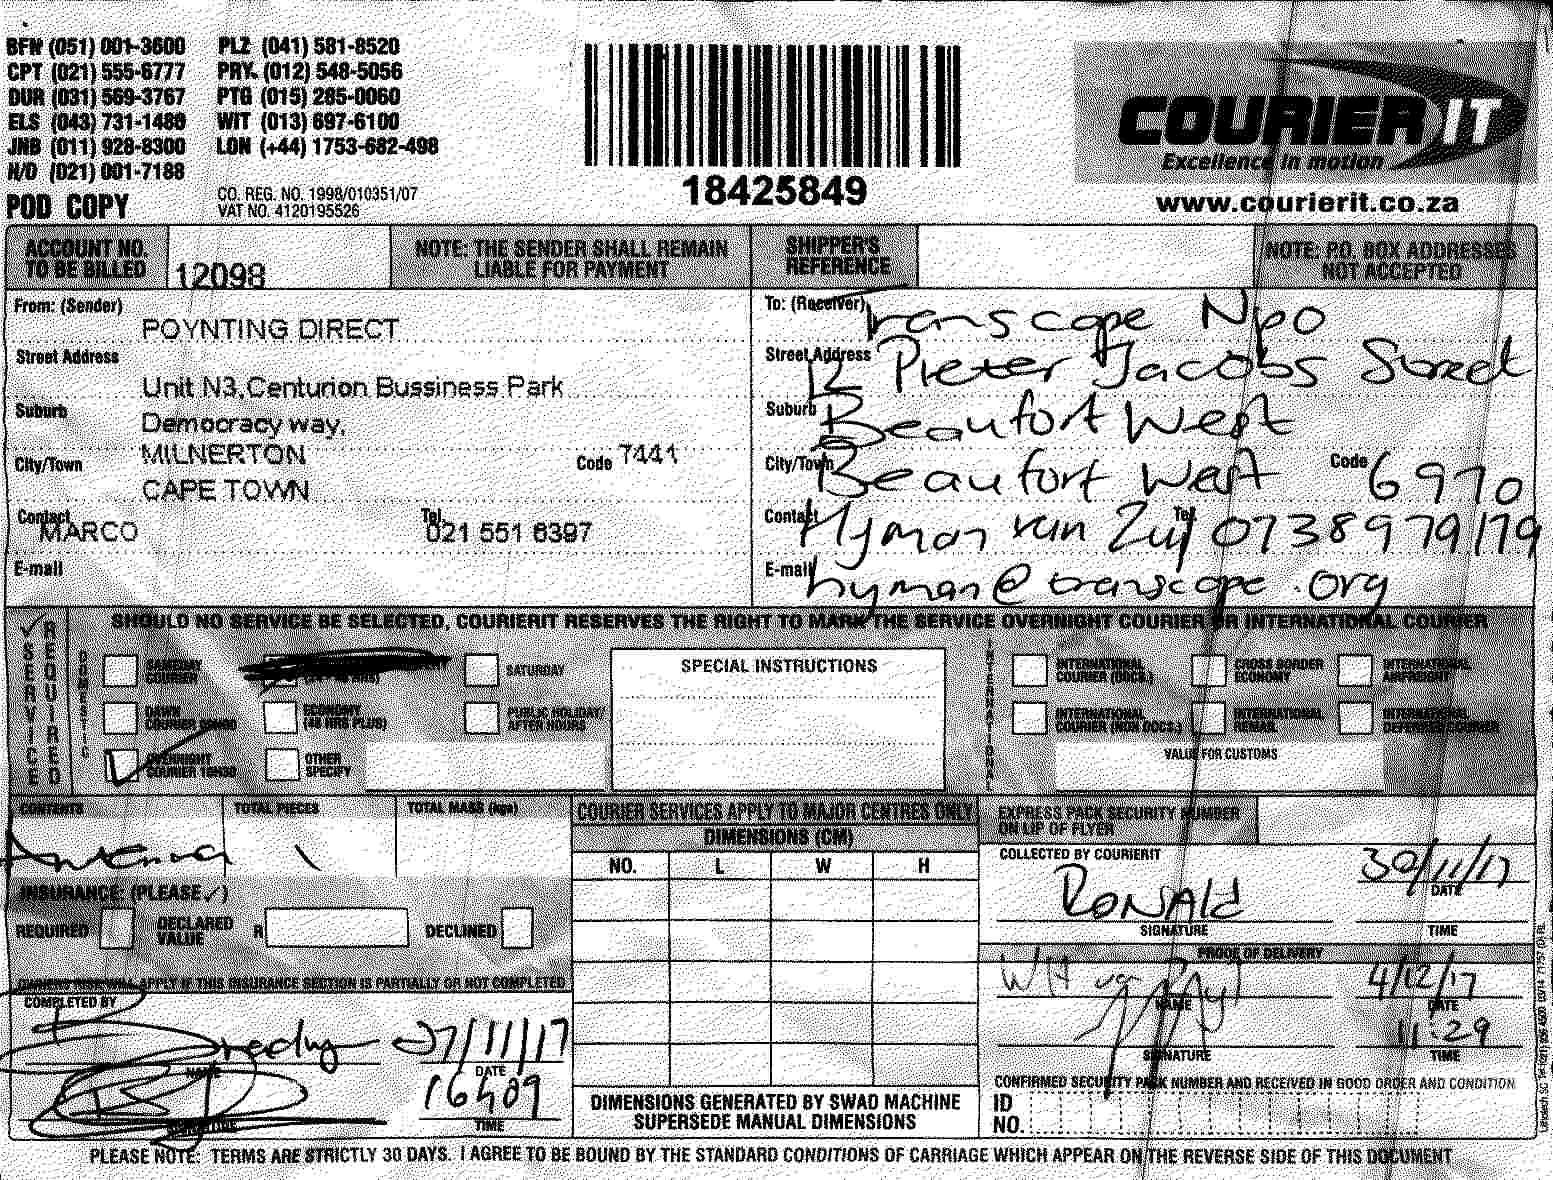 BFN (051) 001-3600 PLZ (041) 581-8520
CPT (021) 555-6777 PRY. (012) 548-5056
DUR (031) 569-3767 PTG (015) 285-0060
ELS (043) 731-1480 WIT (013) 697-6100
JNB (011) 928-8300 LON (+44) 1753-682-498
N/D (021) 001-7188
POD COPY
CO. REG. NO. 1998/010351/07
VAT NO. 4120195526
18425849
COURIER IT
Excellence in motion
www.courierit.co.za
ACCOUNT NO. TO BE BILLED 12098
NOTE: THE SENDER SHALL REMAIN LIABLE FOR PAYMENT
SHIPPER'S REFERENCE
NOTE: P.O. BOX ADDRESSES NOT ACCEPTED
From: (Sender) POYNTING DIRECT
Street Address Unit N3,Centurion Bussiness Park
Suburb Democracy way,
City/Town MILNERTON Code 7441
CAPE TOWN
Contact MARCO Tel. 021 551 6397
E-mail
To: (Receiver) Transcape Npo
Street Address 12 Pieter Jacobs Street
Suburb Beaufort West
City/Town Beaufort West Code 6970
Contact Hyman van Zuyl Tel 0738979179
E-mail hyman@transcape.org
SERVICE REQUIRED
SHOULD NO SERVICE BE SELECTED, COURIERIT RESERVES THE RIGHT TO MARK THE SERVICE OVERNIGHT COURIER OR INTERNATIONAL COURIER
DOMESTIC
SAMEDAY COURIER
SATURDAY
DAWN COURIER
ECONOMY (48 HRS PLUS)
PUBLIC HOLIDAY/ AFTER HOURS
OVERNIGHT COURIER 10H30
OTHER SPECIFY
SPECIAL INSTRUCTIONS
INTERNATIONAL
INTERNATIONAL COURIER (DOCS.)
CROSS BORDER ECONOMY
INTERNATIONAL AIRFREIGHT
INTERNATIONAL COURIER (NON DOCS.)
INTERNATIONAL REMAIL
INTERNATIONAL DEFERRED COURIER
VALUE FOR CUSTOMS
CONTENTS TOTAL PIECES TOTAL MASS (kgs)
Antenna 1
INSURANCE: (PLEASE ✓)
REQUIRED DECLARED VALUE R DECLINED
OWNERS RISK WILL APPLY IF THIS INSURANCE SECTION IS PARTIALLY OR NOT COMPLETED
COMPLETED BY
27/11/17
NAME DATE
16h09
SIGNATURE TIME
COURIER SERVICES APPLY TO MAJOR CENTRES ONLY
DIMENSIONS (CM)
NO. L W H
DIMENSIONS GENERATED BY SWAD MACHINE SUPERSEDE MANUAL DIMENSIONS
EXPRESS PACK SECURITY NUMBER ON LIP OF FLYER
COLLECTED BY COURIERIT
RONALD 30/11/17
DATE
SIGNATURE TIME
PROOF OF DELIVERY
4/12/17
NAME DATE
11:29
SIGNATURE TIME
CONFIRMED SECURITY PACK NUMBER AND RECEIVED IN GOOD ORDER AND CONDITION
ID NO.
PLEASE NOTE: TERMS ARE STRICTLY 30 DAYS. I AGREE TO BE BOUND BY THE STANDARD CONDITIONS OF CARRIAGE WHICH APPEAR ON THE REVERSE SIDE OF THIS DOCUMENT